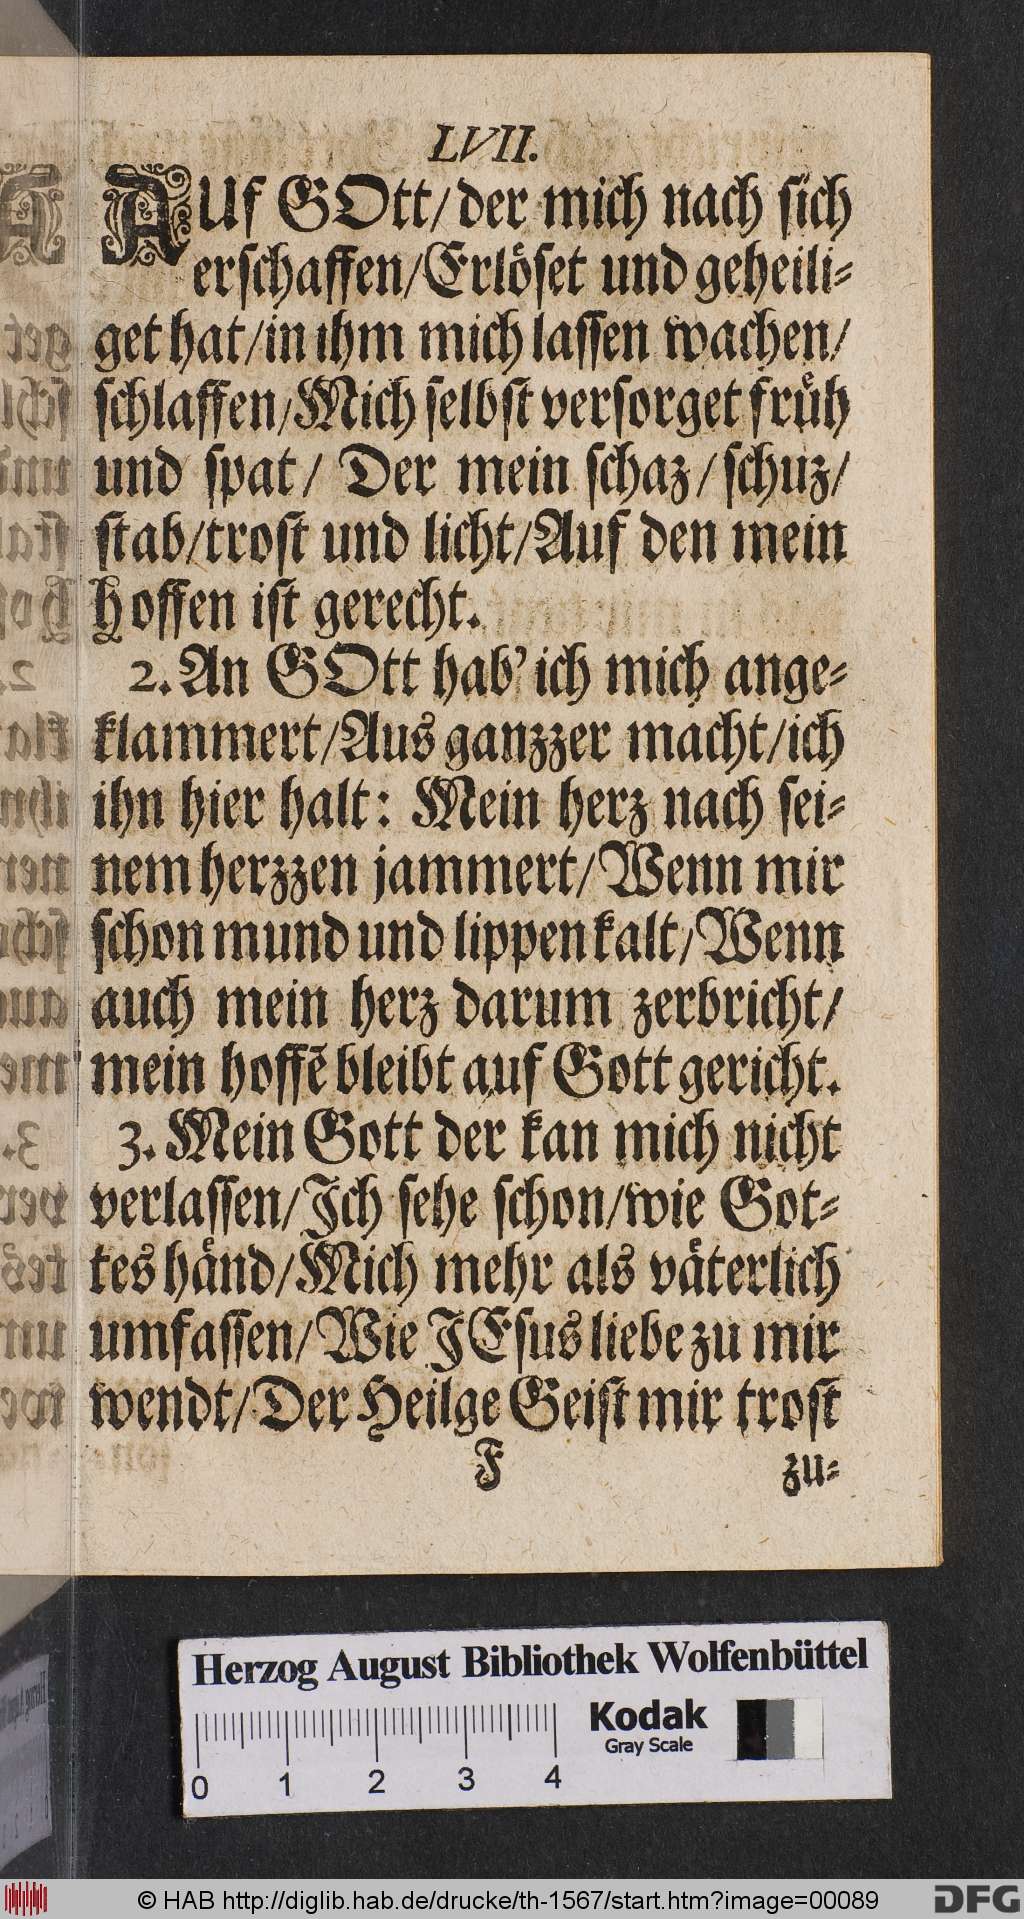 LVII.
AUf GOtt/ der mich nach sich
erschaffen/ Erlöset und geheili-
get hat/ in ihm mich lassen wachen/
schlaffen/ Mich selbst versorget früh
und spat/ Der mein schaz/ schuz/
stab/ trost und licht/ Auf den mein
hoffen ist gerecht.
2. An GOtt hab' ich mich ange-
klammert/ Aus ganzzer macht/ ich
ihn hier halt: Mein herz nach sei-
nem herzzen jammert/ Wenn mir
schon mund und lippen kalt/ Wenn
auch mein herz darum zerbricht/
mein hoffẽ bleibt auf Gott gericht.
3. Mein Gott der kan mich nicht
verlassen/ Ich sehe schon/ wie Got-
tes händ/ Mich mehr als väterlich
umfassen/ Wie JEsus liebe zu mir
wendt/ Der Heilge Geist mir trost
F zu-
Herzog August Bibliothek Wolfenbüttel
Kodak
Gray Scale
0 1 2 3 4
© HAB http://diglib.hab.de/drucke/th-1567/start.htm?image=00089
DFG